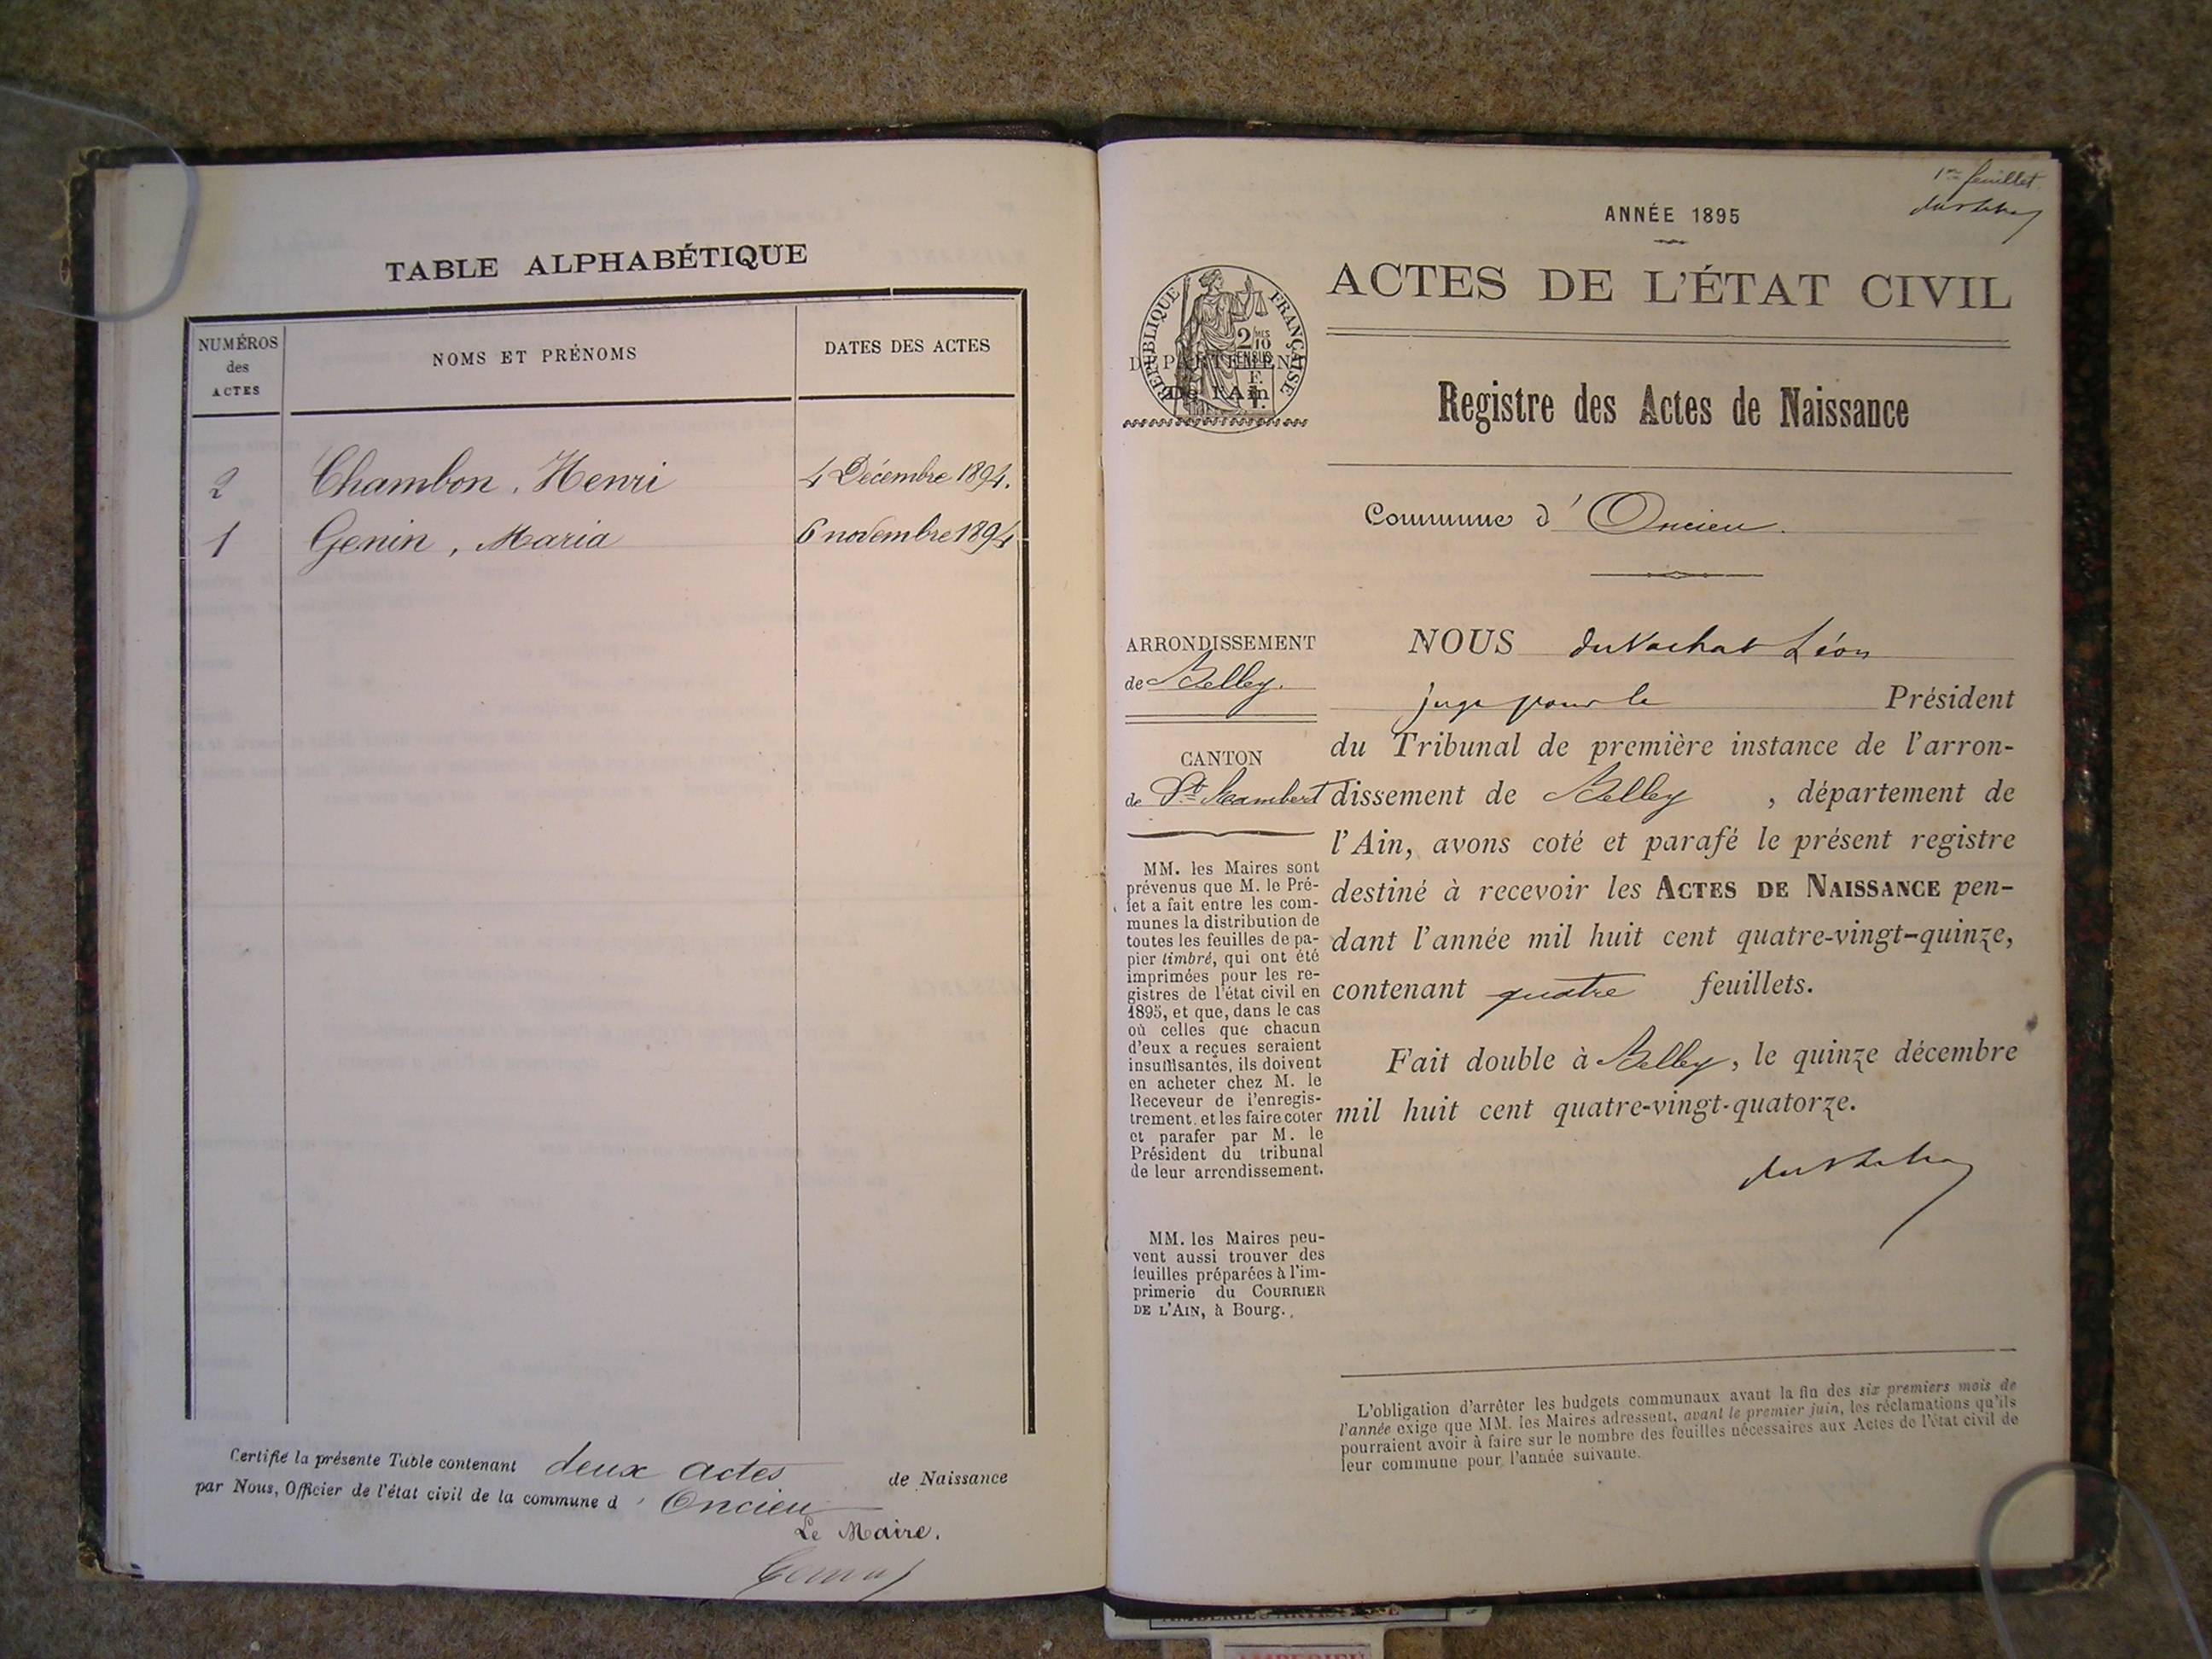 TABLE ALPHABÉTIQUE
NUMÉROS
des
ACTES
NOMS ET PRÉNOMS
DATES DES ACTES
2 Chambon, Henri 4 Décembre 1894.
1 Genin, Maria 6 novembre 1894
Certifié la présente Table contenant deux actes de Naissance
par Nous, Officier de l'état civil de la commune d ' Oncieu
Le Maire.
1er feuillet
ANNÉE 1895
ACTES DE L'ÉTAT CIVIL
RÉPUBLIQUE FRANÇAISE
2/10 EN SUS
DÉPARTEMENT
De l'Ain
Registre des Actes de Naissance
Commune d' Oncieu.
ARRONDISSEMENT
de Belley.
CANTON
de St Rambert
MM. les Maires sont
prévenus que M. le Pré-
fet a fait entre les com-
munes la distribution de
toutes les feuilles de pa-
pier timbré, qui ont été
imprimées pour les re-
gistres de l'état civil en
1895, et que, dans le cas
où celles que chacun
d'eux a reçues seraient
insuffisantes, ils doivent
en acheter chez M. le
Receveur de l'enregis-
trement, et les faire coter
et parafer par M. le
Président du tribunal
de leur arrondissement.
MM. les Maires peu-
vent aussi trouver des
feuilles préparées à l'im-
primerie du COURRIER
DE L'AIN, à Bourg.
NOUS du Vachat Léon
juge pour le Président
du Tribunal de première instance de l'arron-
dissement de Belley , département de
l'Ain, avons coté et parafé le présent registre
destiné à recevoir les ACTES DE NAISSANCE pen-
dant l'année mil huit cent quatre-vingt-quinze,
contenant quatre feuillets.
Fait double à Belley, le quinze décembre
mil huit cent quatre-vingt-quatorze.
L'obligation d'arrêter les budgets communaux avant la fin des six premiers mois de
l'année exige que MM. les Maires adressent, avant le premier juin, les réclamations qu'ils
pourraient avoir à faire sur le nombre des feuilles nécessaires aux Actes de l'état civil de
leur commune pour l'année suivante.